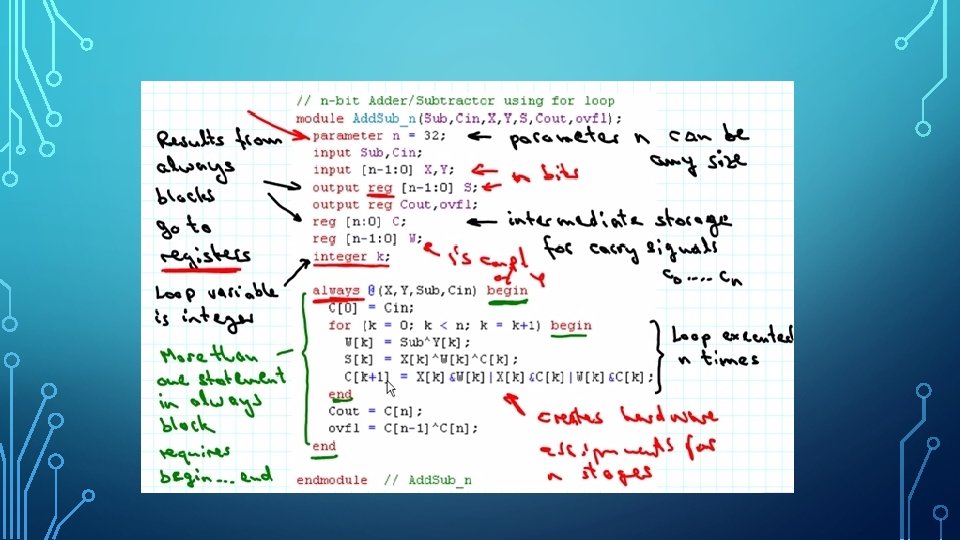 // n-bit Adder/Subtractor using for loop
module AddSub_n(Sub,Cin,X,Y,S,Cout,ovfl);
parameter n = 32;
input Sub,Cin;
input [n-1:0] X,Y;
output reg [n-1:0] S;
output reg Cout,ovfl;
reg [n:0] C;
reg [n-1:0] W;
integer k;
always @(X,Y,Sub,Cin) begin
C[0] = Cin;
for (k = 0; k < n; k = k+1) begin
W[k] = Sub^Y[k];
S[k] = X[k]^W[k]^C[k];
C[k+1] = X[k]&W[k]|X[k]&C[k]|W[k]&C[k];
end
Cout = C[n];
ovfl = C[n-1]^C[n];
end
endmodule // AddSub_n
Results from
always
blocks
go to
registers
Loop variable
is integer
More than
one statement
in always
block
requires
begin...end
parameter n can be
any size
n bits
intermediate storage
for carry signals
c0 .... cn
1's compl
of Y
Loop executed
n times
creates hardware
assignments for
n stages